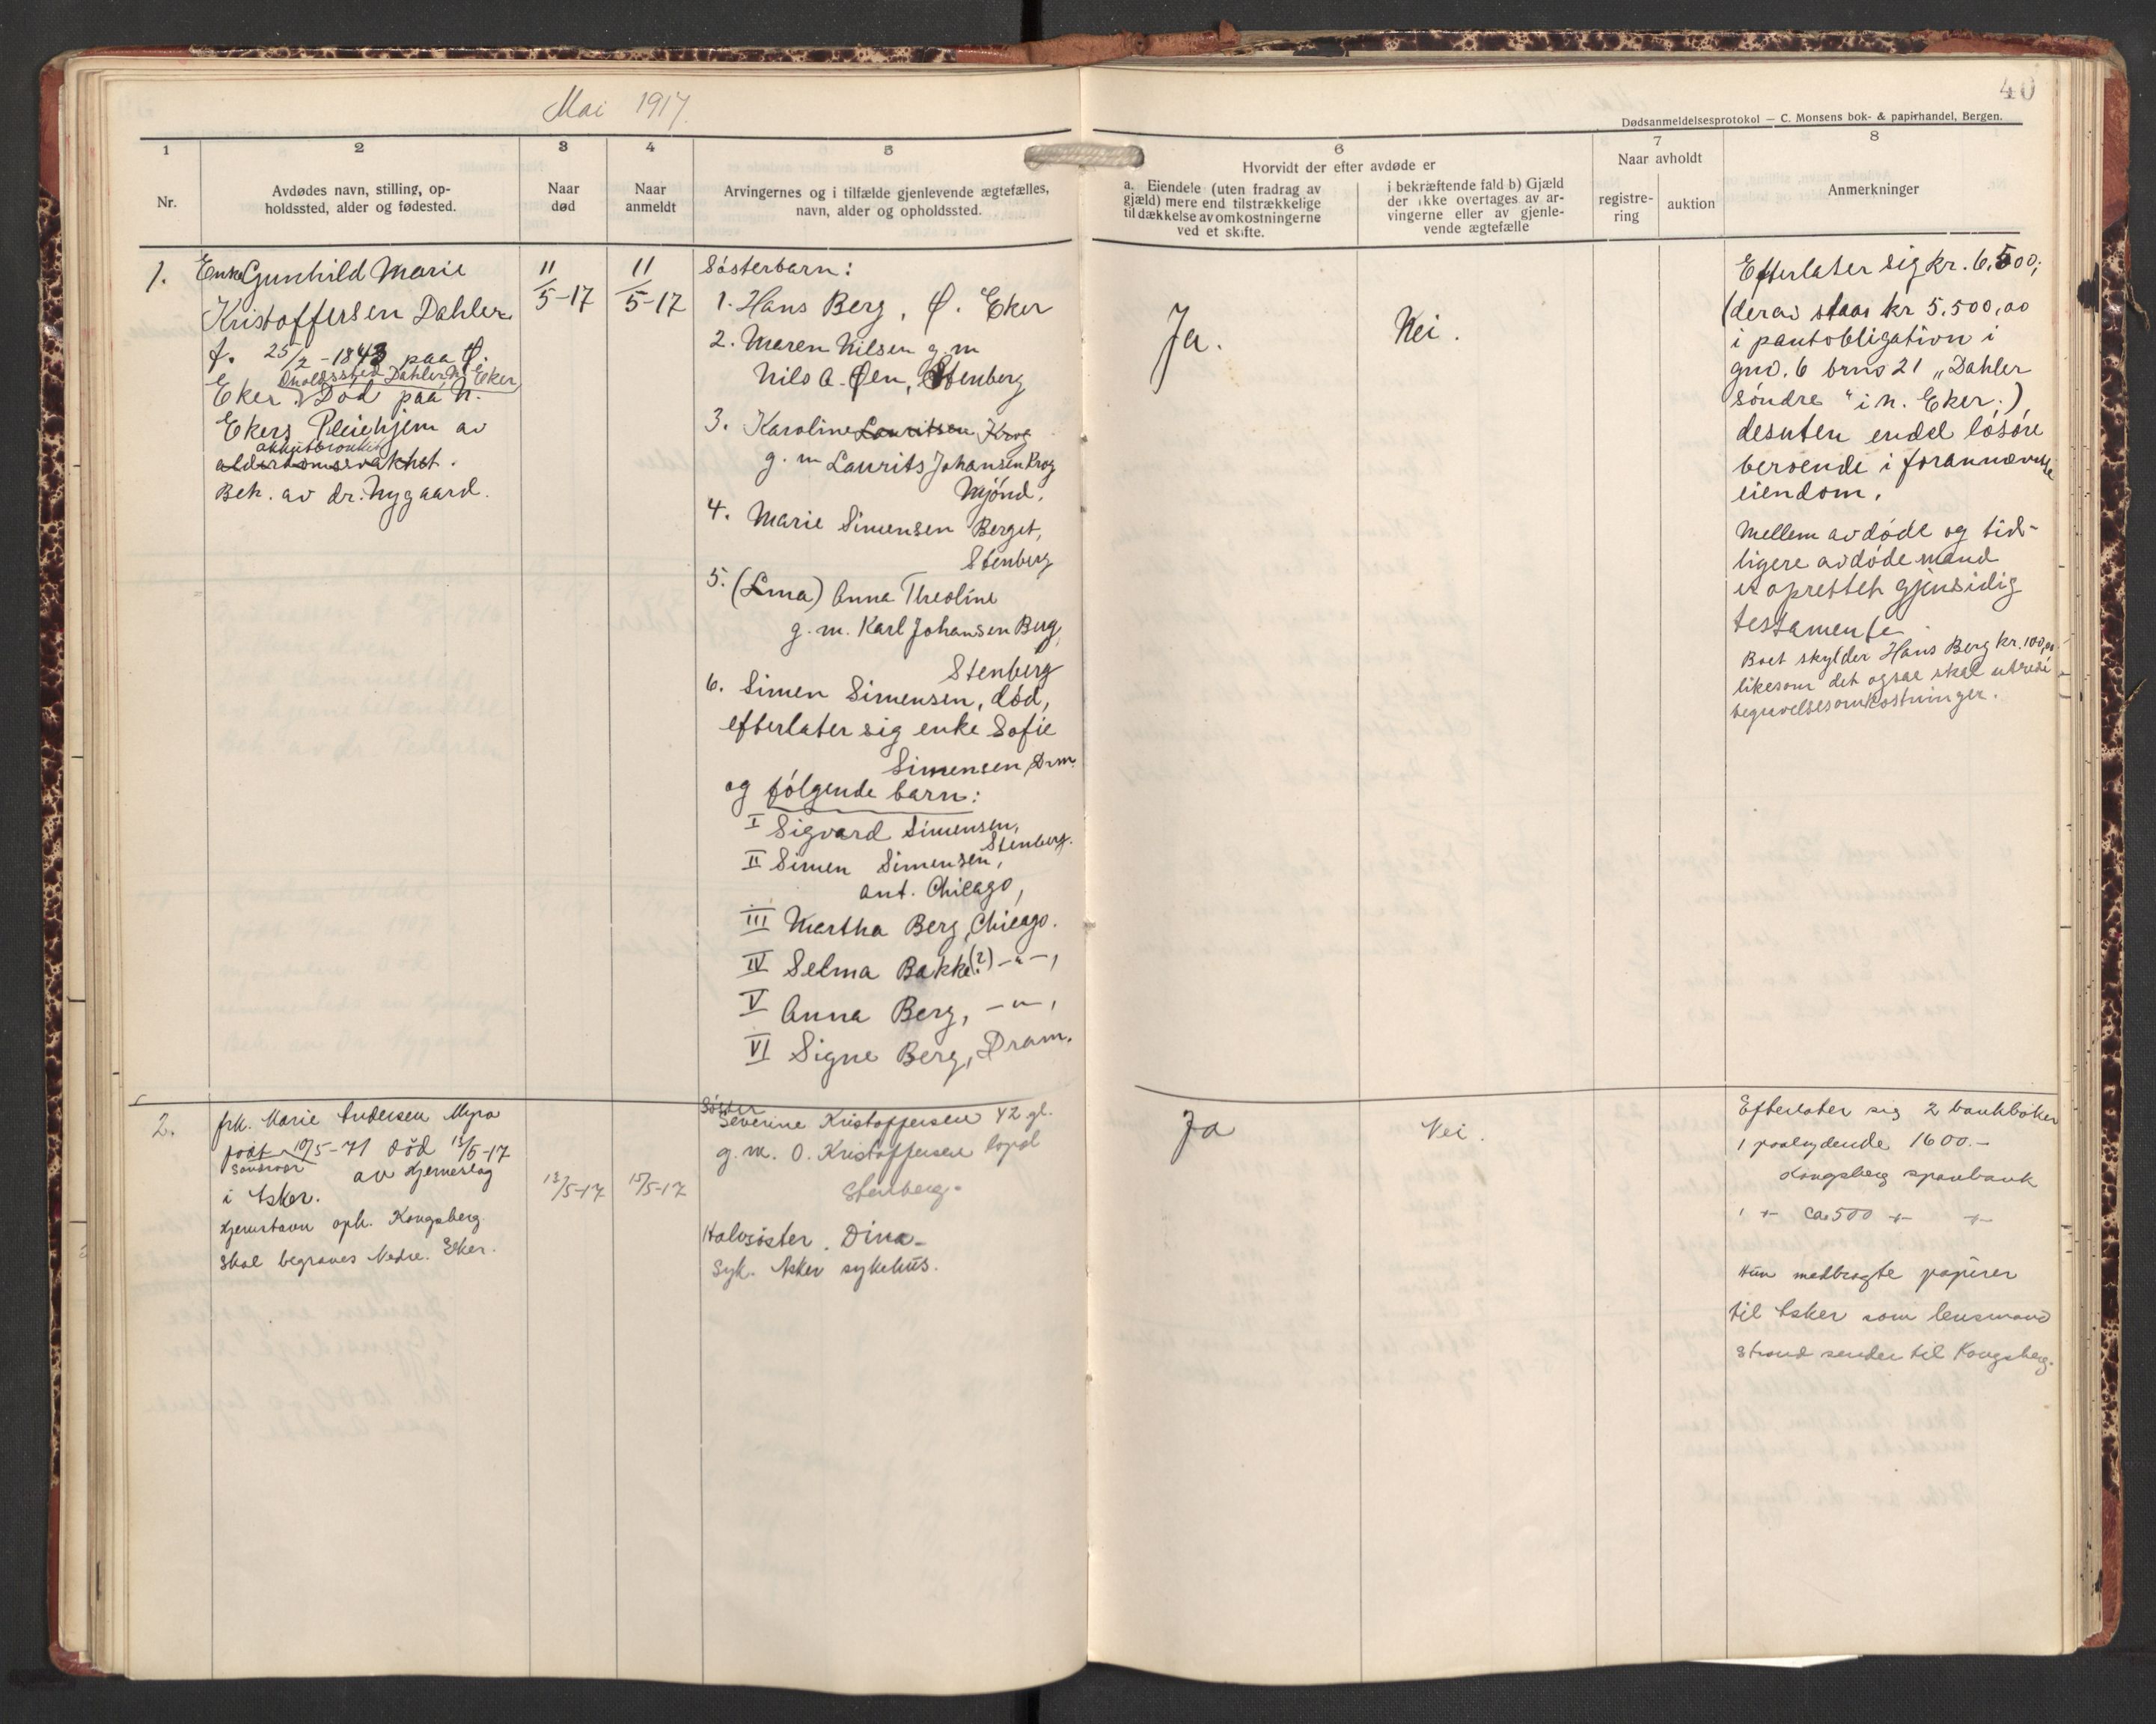 Mai 1917.
40
Dødsanmeldelsesprotokol — C. Monsens bok- & papirhandel, Bergen.
1
Nr.
2
Avdødes navn, stilling, op-
holdssted, alder og fødested.
3
Naar
død
4
Naar
anmeldt
5
Arvingernes og i tilfælde gjenlevende ægtefælles,
navn, alder og opholdssted.
6
Hvorvidt der efter avdøde er
a. Eiendele (uten fradrag av
gjæld) mere end tilstrækkelige
til dækkelse av omkostningerne
ved et skifte.
i bekræftende fald b) Gjæld
der ikke overtages av ar-
vingerne eller av gjenle-
vende ægtefælle
7
Naar avholdt
registre-
ring
auktion
8
Anmerkninger
1.
Enke Gunhild Marie
Kristoffersen Dahler
f. 25/2 - 1843 paa Ø.
Opholdssted Dahler N. Eker
Eker. Død paa N.
Ekers Pleiehjem av
akut bronkit
alderdomssvakhet.
Beh. av dr. Nygaard.
11/5-17
11/5-17
Søsterbarn:
1. Hans Berg, Ø. Eker
2. Maren Nilsen g. m
Nils A. Øen, Stenberg
3. Karoline Lauritsen Krog
g. m Laurits Johansen Krog
Mjønd.
4. Marie Simensen Berget,
Stenberg
5. (Lina) Anna Theoline
g. m. Karl Johansen Berg,
Stenberg
6. Simen Simensen, død,
efterlater sig enke Sofie
Simensen, Drm.
og følgende barn:
I Sigvard Simensen,
Stenberg.
II Simen Simensen,
ant. Chicago,
III Martha Berg, Chicago.
IV Selma Bakke (?) -"-,
V Anna Berg, -"-,
VI Signe Berg, Dram.
Ja.
Nei.
Efterlater sig kr. 6.500;
(derav staar kr 5.500,00
i pantobligation i
gno. 6 brno 21 „Dahler
søndre" i N. Eker.)
desuten endel løsøre
beroende i forannævnte
eiendom.
Mellem avdøde og tid-
ligere avdøde mand
er oprettet gjensidig
testamente.
Boet skylder Hans Berg kr. 100,00
likesom det ogsaa skal utrede
begravelsesomkostninger.
2.
frk. Marie Andersen Myra
født 10/5-71 død 13/5-17
Sandsvær av hjerneslag
i Asker.
Hjemstavn oph. Kongsberg
Skal begraves Nedre Eker.
13/5-17
15/5-17
Søster
Severine Kristoffersen 42 gl.
g. m. O. Kristoffersen
Stenberg.
Halvsøster. Dina -
Syk. Asker sykehus.
Ja
Nei.
Efterlater sig 2 bankbøker
1 paalydende 1600.-
Kongsberg sparebank
1 -"- ca 500 -"- -"-
Hun medbragte papirer
til Asker som lensmand
Strand sender til Kongsberg.